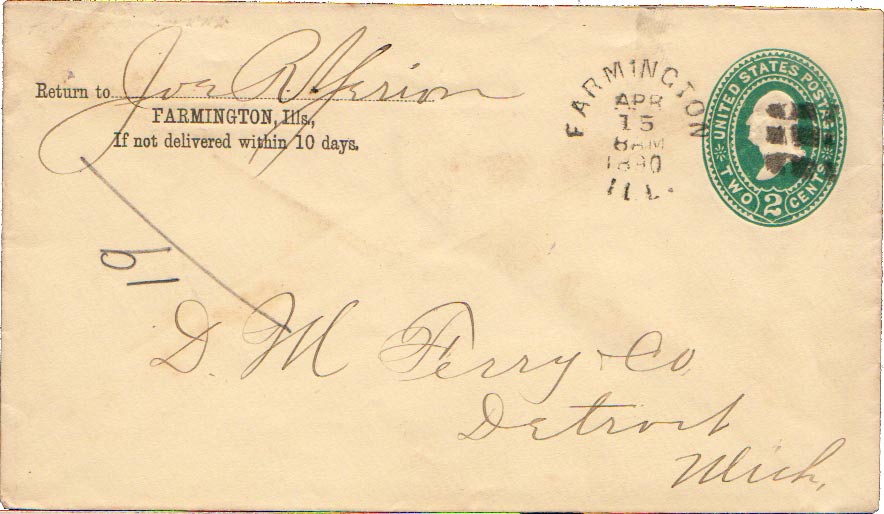 Return to Joe R.
FARMINGTON, Ills.,
If not delivered within 10 days.
FARMINGTON
APR
15
8AM
1890
ILL.
UNITED STATES POSTAGE
TWO 2 CENTS
19
D. M Ferry & Co
Detroit
Mich.